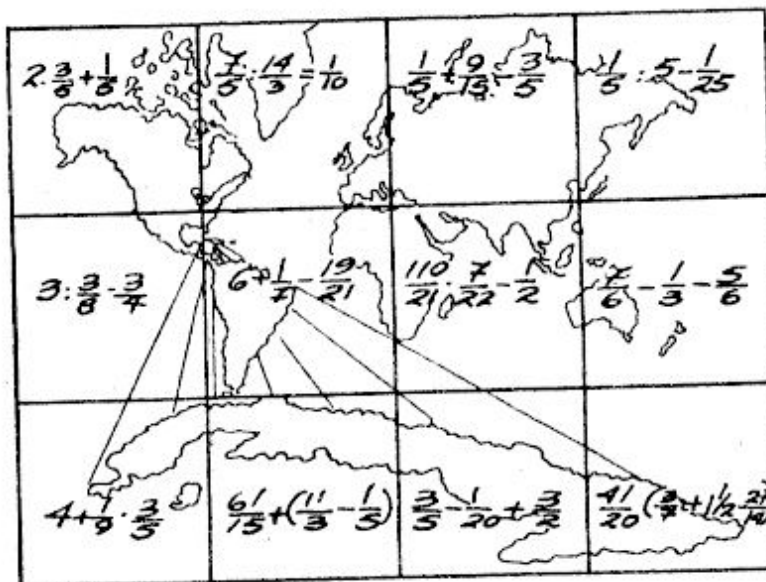 2·3/8+1/8 7/5:14/3=1/10 1/5+9/15-3/5 1/5:5-1/25
3:3/8·3/4 6+1/7-19/21 110/21·7/22-1/2 7/6-1/3-5/6
4+1/9·3/5 61/15+(11/3-1/5) 3/5-1/20+3/2 41/20(3/7+1 1/2